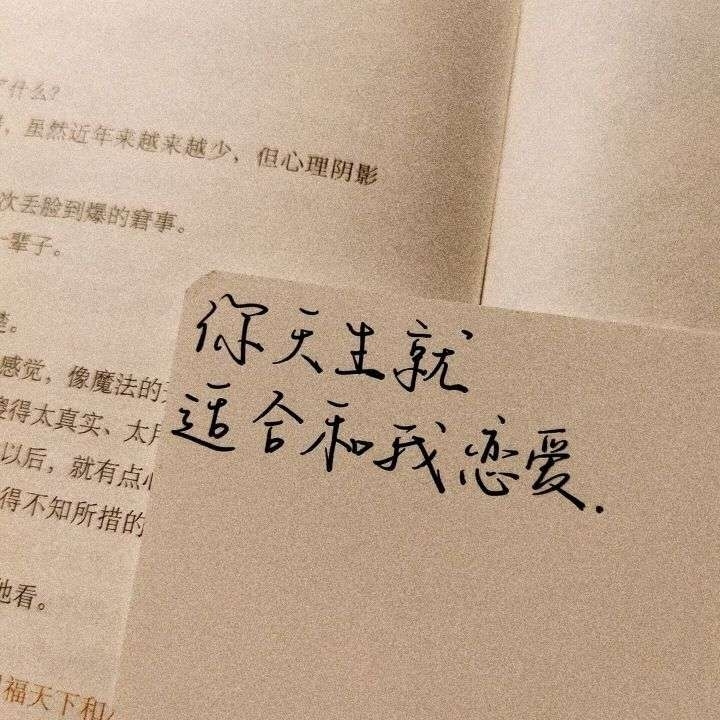 什么?
，虽然近年来越来越少，但心理阴影
次丢脸到爆的窘事。
一辈子。
感觉，像魔法的
得太真实、太
以后，就有点
得不知所措的
他看。
福天下和
你天生就
适合和我恋爱.